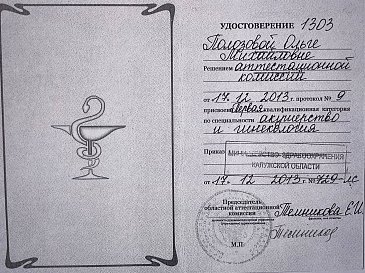 УДОСТОВЕРЕНИЕ 1303
Полозовой Ольге
Михайловне
Решением аттестационной
комиссии
от 17.12.2013 г. протокол № 9
присвоена первая квалификационная категория
по специальности акушерство
и гинекология
Приказ МИНИСТЕРСТВО ЗДРАВООХРАНЕНИЯ
КАЛУЖСКОЙ ОБЛАСТИ
от 17.12 2013 г. № 729-лс
Председатель
областной аттестационной
комиссии Темникова Е.И.
М.П.